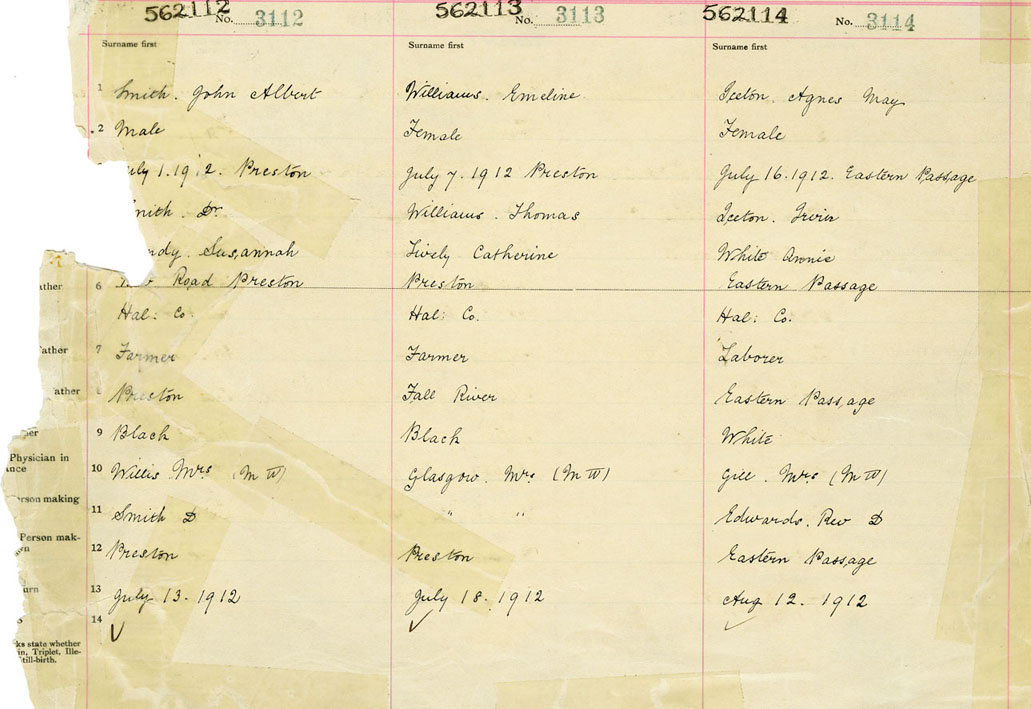 562112 No. 3112 562113 No. 3113 562114 No. 3114
Surname first Surname first Surname first
1 Smith. John Albert Williams. Emeline Iceton. Agnes May
2 Male Female Female
July 1. 1912. Preston July 7. 1912 Preston July 16. 1912. Eastern Passage
Smith. Williams. Thomas Iceton. Irvin
Susannah Lively Catherine White Annie
ather 6 Road Preston Preston Eastern Passage
Hal: Co. Hal: Co. Hal: Co.
ather 7 Farmer Farmer Laborer
ather 8 Preston Fall River Eastern Passage
her 9 Black Black White
Physician in
ance 10 Willis Mrs (M W) Glasgow. Mrs (M W) Gill. Mrs (M W)
erson making
11 Smith D " " Edwards. Rev D
Person mak-
12 Preston Preston Eastern Passage
urn 13 July 13. 1912 July 18. 1912 Aug 12. 1912
14
ks state whether
in, Triplet, Ille-
till-birth.